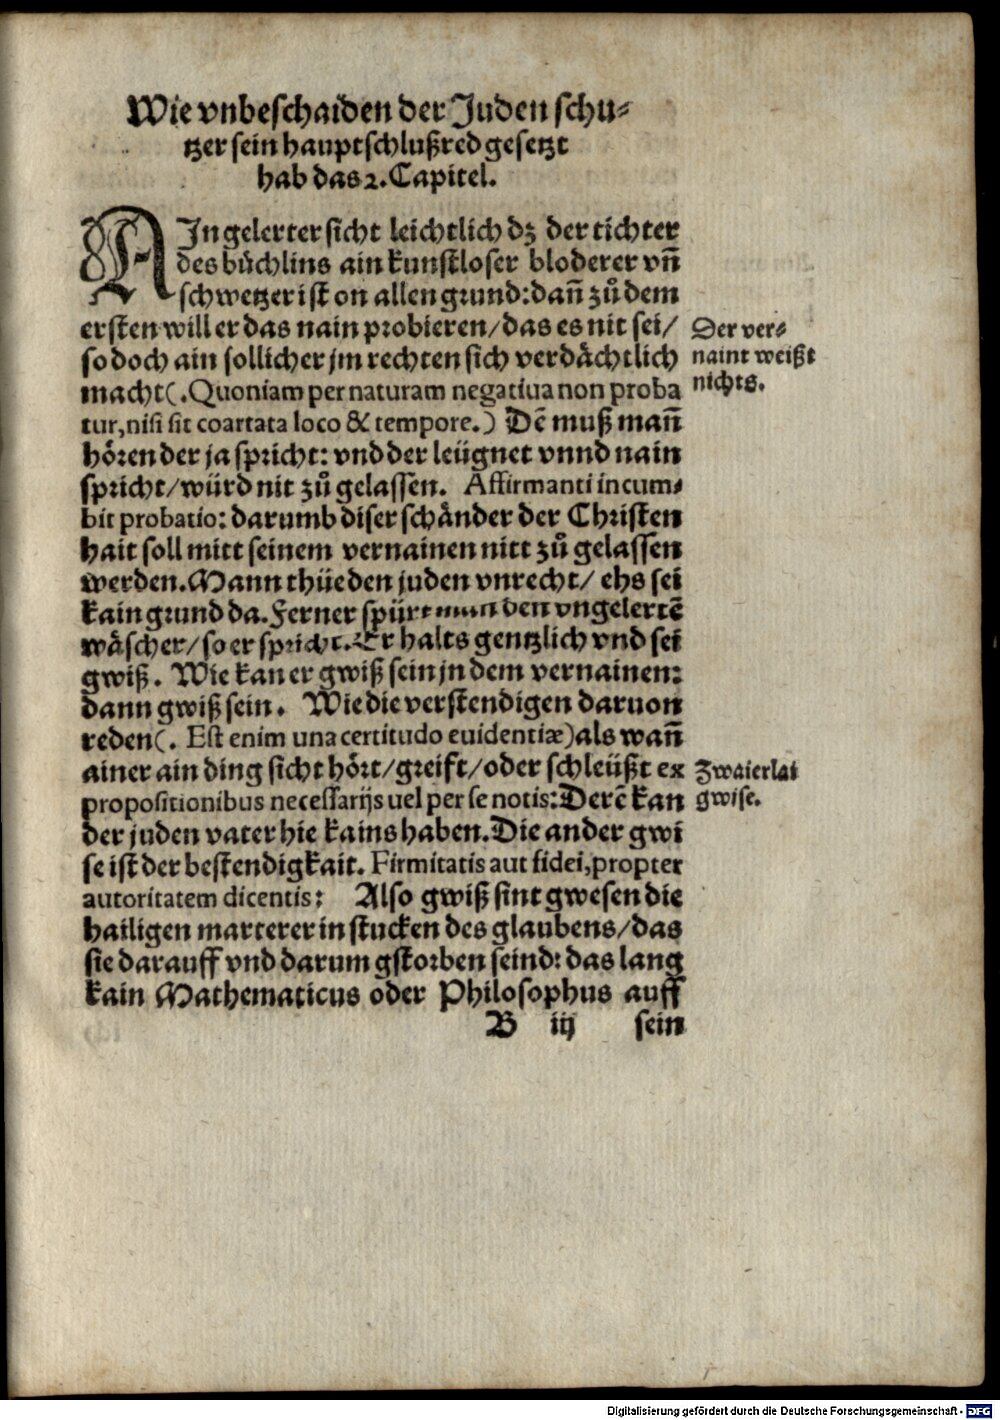 Wie vnbeschaiden der Juden schu⸗
tzer sein hauptschlußred gesetzt
hab das 2. Capitel.
AIn gelerter sicht leichtlich dz der tichter
des bůchlins ain kunstloser bloderer vñ
schwetzer ist on allen grund: dañ zů dem
ersten will er das nain probieren/das es nit sei/
so doch ain sollicher jm rechten sich verdåchtlich
macht(. Quoniam per naturam negatiua non proba
tur, nisi sit coartata loco & tempore.) Dē muß mañ
hôren der ja spricht: vnd der leügnet vnnd nain
spricht/würd nit zů gelassen. Affirmanti incum⸗
bit probatio: darumb diser schånder der Christen
hait soll mitt seinem vernainen nitt zů gelassen
werden. Mann thüe den juden vnrecht/ ehs sei
kain grund da. Ferner spürt man den vngelertē
wåscher/so er spricht. Er halts gentzlich vnd sei
gwiß. Wie kan er gwiß sein jn dem vernainen:
dann gwiß sein. Wie die verstendigen daruon
reden(. Est enim una certitudo euidentiæ) als wañ
ainer ain ding sicht hôrt/greift/oder schleüßt ex
propositionibus necessarijs uel per se notis: Derē kan
der juden vater hie kains haben. Die ander gwi
se ist der bestendigkait. Firmitatis aut fidei, propter
autoritatem dicentis: Also gwiß sint gwesen die
hailigen marterer in stucken des glaubens/das
sie darauff vnd darum gstorben seind: das lang
kain Mathematicus oder Philosophus auff
B iij sein
Der ver⸗
naint weißt
nichts.
Zwaierlai
gwise.
Digitalisierung gefördert durch die Deutsche Forschungsgemeinschaft - DFG